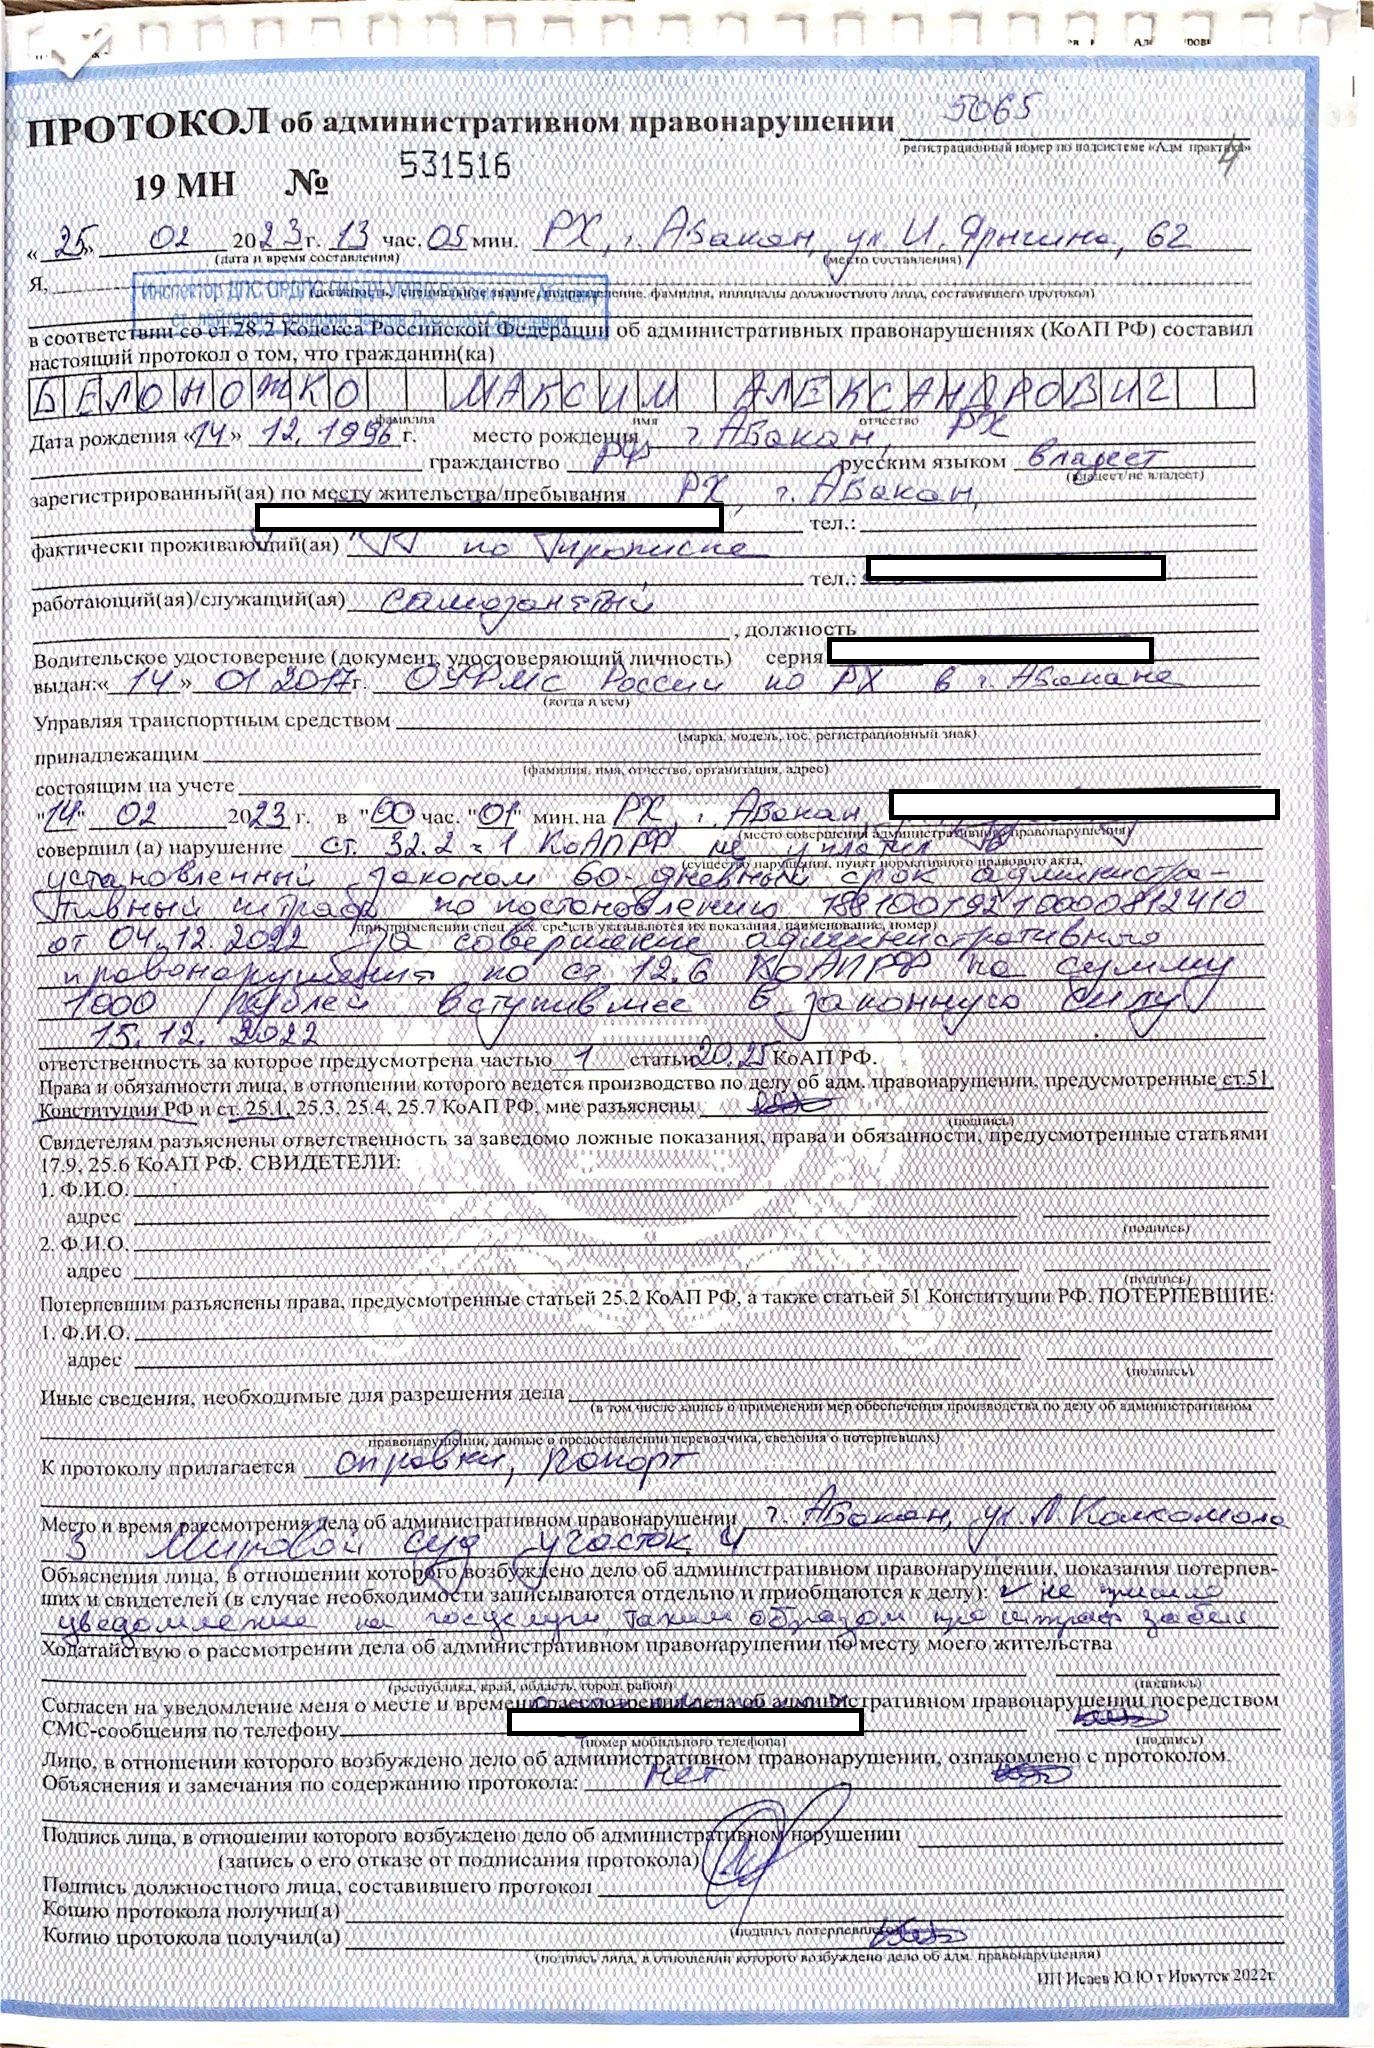 ПРОТОКОЛ об административном правонарушении 5065
регистрационный номер по подсистеме «Адм. практика»
4
19 МН № 531516
«25» 02 2023 г. 13 час. 05 мин. РХ, г. Абакан, ул. И. Ярыгина, 62
(дата и время составления) (место составления)
Я,
Инспектор ДПС ОРДПС ГИБДД УМВД
(должность, специальное звание, подразделение, фамилия, инициалы должностного лица, составившего протокол)
в соответствии со ст.28.2 Кодекса Российской Федерации об административных правонарушениях (КоАП РФ) составил
настоящий протокол о том, что гражданин(ка)
БЕЛОНОЖКО МАКСИМ АЛЕКСАНДРОВИЧ
фамилия имя отчество
Дата рождения «14» 12. 1996 г. место рождения г. Абакан, РХ
гражданство РФ русским языком владеет
(владеет/не владеет)
зарегистрированный(ая) по месту жительства/пребывания РХ, г. Абакан,
тел.:
фактически проживающий(ая) по прописке
тел.:
работающий(ая)/служащий(ая) самозанятый
, должность
Водительское удостоверение (документ, удостоверяющий личность) серия
выдан:«14» 01 2017 г. ОУФМС России по РХ в г. Абакане
(когда и кем)
Управляя транспортным средством
(марка, модель, гос. регистрационный знак)
принадлежащим
(фамилия, имя, отчество, организация, адрес)
состоящим на учете
"14" 02 2023 г. в "00" час. "01" мин. на РХ, г. Абакан
(место совершения административного правонарушения)
совершил (а) нарушение ст. 32.2 ч 1 КоАП РФ не уплатил в
(существо нарушения, пункт нормативного правового акта,
установленный законом 60-дневный срок администра-
тивный штраф по постановлению 18810019210000812410
при применении спец. тех. средств указываются их показания, наименование, номер)
от 04.12.2022 за совершение административного
правонарушения по ст 12.6 КоАП РФ на сумму
1000 рублей вступившее в законную силу
15.12.2022
ответственность за которое предусмотрена частью 1 статьи 20.25 КоАП РФ.
Права и обязанности лица, в отношении которого ведется производство по делу об адм. правонарушении, предусмотренные ст.51
Конституции РФ и ст. 25.1, 25.3, 25.4, 25.7 КоАП РФ, мне разъяснены
(подпись)
Свидетелям разъяснены ответственность за заведомо ложные показания, права и обязанности, предусмотренные статьями
17.9, 25.6 КоАП РФ. СВИДЕТЕЛИ:
1. Ф.И.О.
адрес
(подпись)
2. Ф.И.О.
адрес
(подпись)
Потерпевшим разъяснены права, предусмотренные статьей 25.2 КоАП РФ, а также статьей 51 Конституции РФ. ПОТЕРПЕВШИЕ:
1. Ф.И.О.
адрес
(подпись)
Иные сведения, необходимые для разрешения дела
(в том числе запись о применении мер обеспечения производства по делу об административном
правонарушении, данные о предоставлении переводчика, сведения о потерпевших)
К протоколу прилагается справки, рапорт
Место и время рассмотрения дела об административном правонарушении г. Абакан, ул. Л. Комсомола
3 Мировой суд участок 4
Объяснения лица, в отношении которого возбуждено дело об административном правонарушении, показания потерпев-
ших и свидетелей (в случае необходимости записываются отдельно и приобщаются к делу): не пришло
уведомление на госуслуги, таким образом про штраф забыл.
Ходатайствую о рассмотрении дела об административном правонарушении по месту моего жительства
(республика, край, область, город, район) (подпись)
Согласен на уведомление меня о месте и времени рассмотрения дела об административном правонарушении посредством
СМС-сообщения по телефону
(номер мобильного телефона) (подпись)
Лицо, в отношении которого возбуждено дело об административном правонарушении, ознакомлено с протоколом.
Объяснения и замечания по содержанию протокола: нет
Подпись лица, в отношении которого возбуждено дело об административном нарушении
(запись о его отказе от подписания протокола)
Подпись должностного лица, составившего протокол
Копию протокола получил(а)
(подпись потерпевшего)
Копию протокола получил(а)
(подпись лица, в отношении которого возбуждено дело об адм. правонарушения)
ИП Исаев Ю.Ю г Иркутск 2022г.